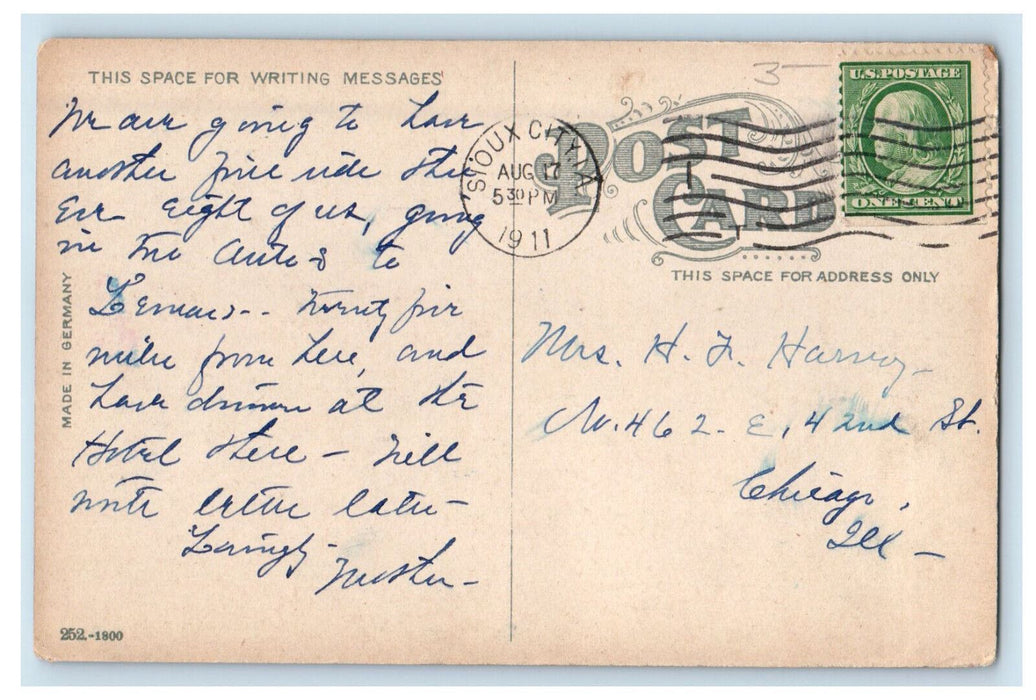 THIS SPACE FOR WRITING MESSAGES
We are going to have
another fine ride this
Eve Eight of us, going
in two Autos to
Lemars -- Twenty five
miles from here, and
have dinner at the
Hotel there - Will
write letter later -
Lovingly -
Mother -
MADE IN GERMANY
252.-1800
3
SIOUX CITY, IA.
AUG 17
5 30 PM
1911
POST
CARD
U.S. POSTAGE
ONE CENT
THIS SPACE FOR ADDRESS ONLY
Mrs. H. F. Harvey -
No. 462 - E. 42nd St.
Chicago,
Ill -